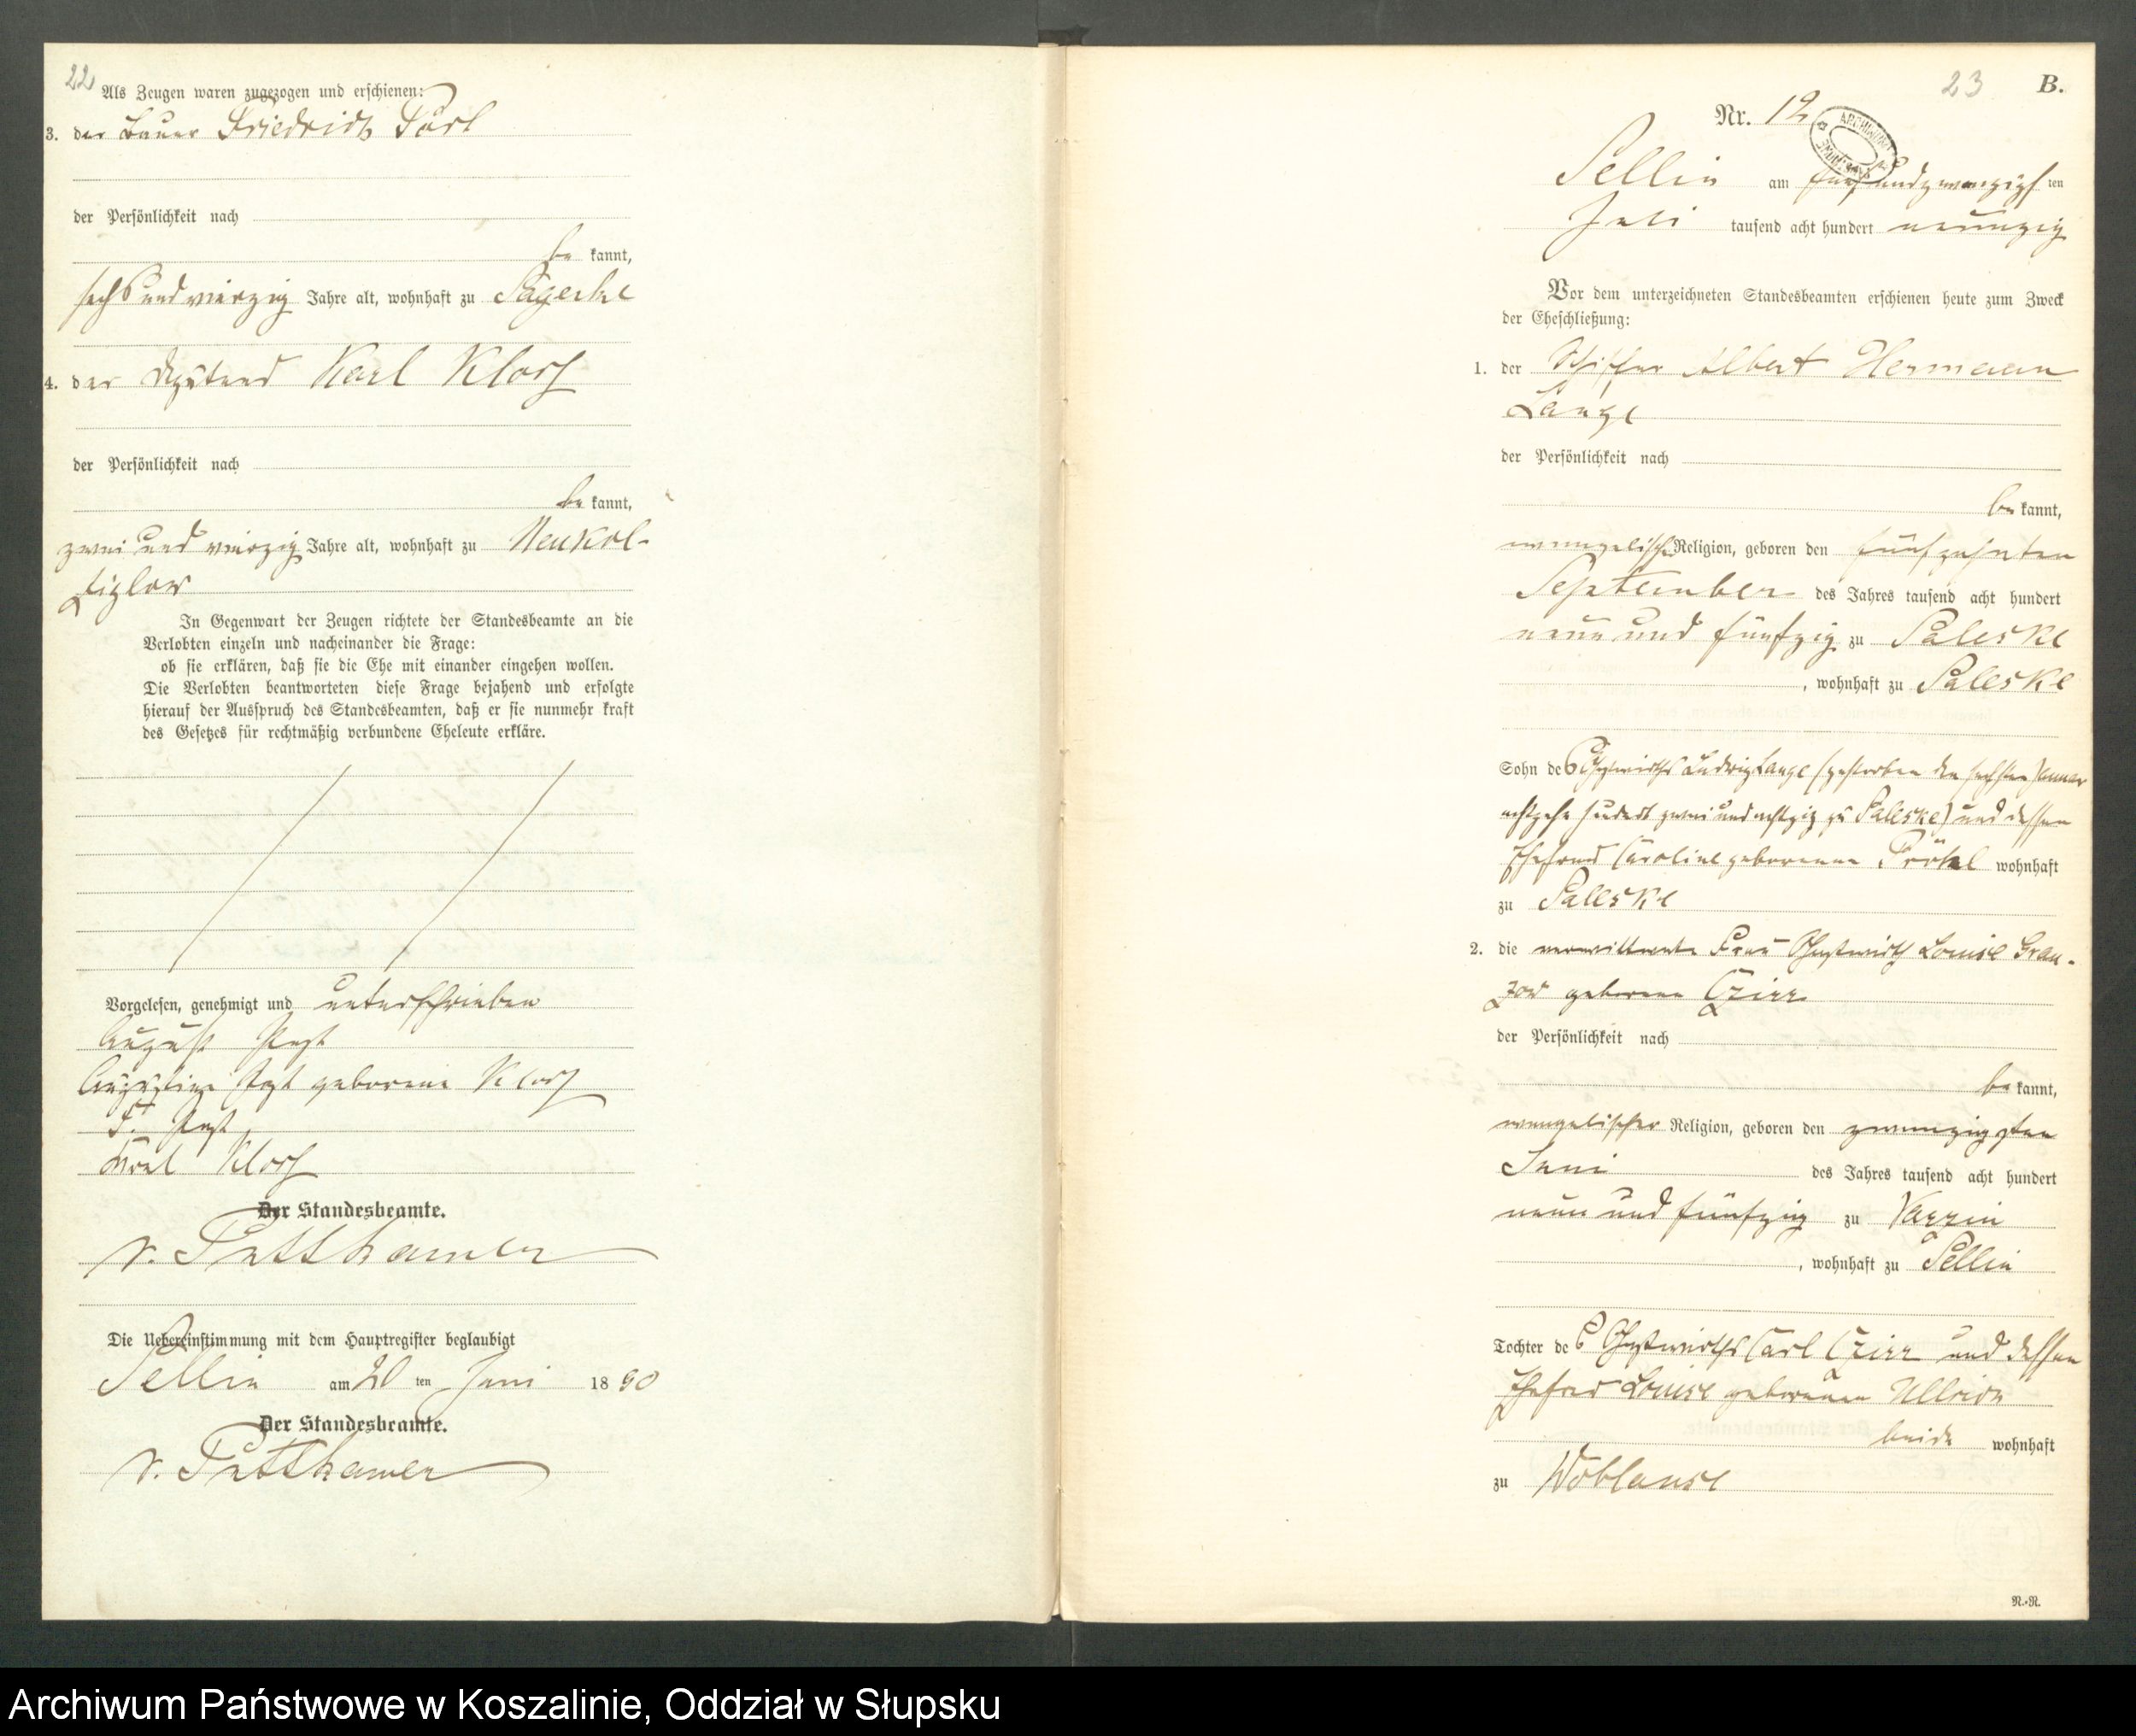 22
Als Zeugen waren zugezogen und erschienen:
3. der Bauer Friedrich
der Persönlichkeit nach
be kannt,
sechs und vierzig Jahre alt, wohnhaft zu Sagerke
4. der Deputant Karl
der Persönlichkeit nach
be kannt,
zwei und vierzig Jahre alt, wohnhaft zu Neukol-
ziglow
In Gegenwart der Zeugen richtete der Standesbeamte an die
Verlobten einzeln und nacheinander die Frage:
ob sie erklären, daß sie die Ehe mit einander eingehen wollen.
Die Verlobten beantworteten diese Frage bejahend und erfolgte
hierauf der Ausspruch des Standesbeamten, daß er sie nunmehr kraft
des Gesetzes für rechtmäßig verbundene Eheleute erkläre.
Vorgelesen, genehmigt und unterschrieben
August
geborene
F.
Karl
Der Standesbeamte.
v. Puttkamer
Die Uebereinstimmung mit dem Hauptregister beglaubigt
Sellin am 20 ten Juni 18 90
Der Standesbeamte.
v. Puttkamer
23 B.
Nr. 12
Sellin am fünfundzwanzigsten
Juli tausend acht hundert neunzig
Vor dem unterzeichneten Standesbeamten erschienen heute zum Zweck
der Eheschließung:
1. der Schiffer Albert Hermann
Lange
der Persönlichkeit nach
be kannt,
evangelischer Religion, geboren den fünfzehnten
September des Jahres tausend acht hundert
neun und fünfzig zu Saleske
, wohnhaft zu Saleske
Sohn des Gastwirths Ludwig Lange (gestorben den sechsten Januar
achtzehn hundert zwei und achtzig zu Saleske) und dessen
Ehefrau Caroline geborenen wohnhaft
zu Saleske
2. die verwittwete Frau Gastwirth Louise Gran-
zow geborene Czirr
der Persönlichkeit nach
be kannt,
evangelischer Religion, geboren den zwanzigsten
Juni des Jahres tausend acht hundert
neun und fünfzig zu Varzin
, wohnhaft zu Sellin
Tochter des Gastwirths Carl Czirr und dessen
Ehefrau Louise geborenen Ullrich
beide wohnhaft
zu Woblanse
N.-R.
Archiwum Państwowe w Koszalinie, Oddział w Słupsku